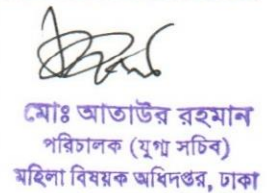 মোঃ আতাউর রহমান
পরিচালক (যুগ্ম সচিব)
মহিলা বিষয়ক অধিদপ্তর, ঢাকা